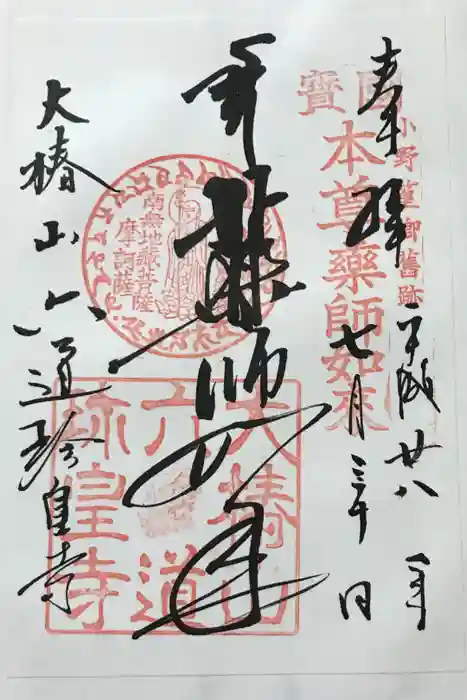 奉拝
平成廿八年
七月三十日
小野篁卿舊跡
國寶
本尊藥師如來
薬師如来
南無地蔵菩薩
摩訶薩
大椿山
六道
珎皇寺
大椿山六道珍皇寺